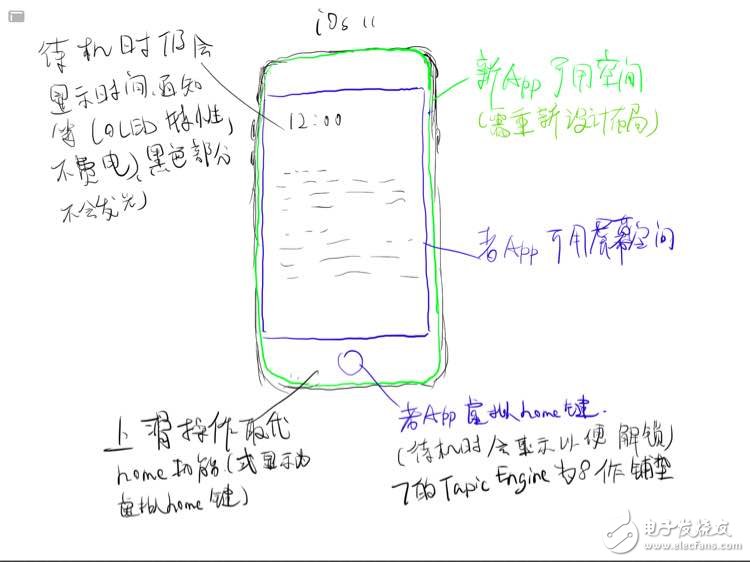 iOS 11
待机时仍会
显示时间、通知
等(OLED特性,
不费电),黑色部分
不会发光)
12:00
新App可用空间
(需重新设计布局)
老App可用屏幕空间
上滑操作取代
home功能(或显示为
虚拟home键)
老App虚拟home键.
(待机时会显示以便解锁)
7的Tapic Engine为8作铺垫
电子发烧友
www.elecfans.com